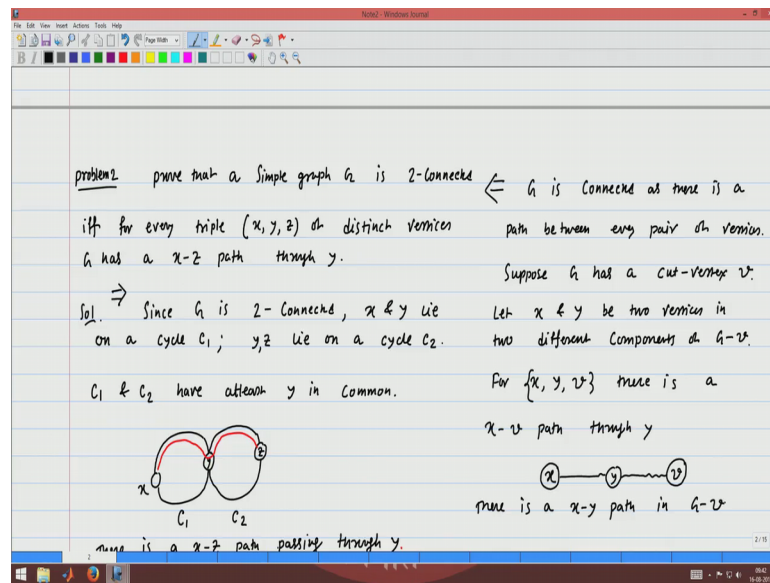 Note2 - Windows Journal
File Edit View Insert Actions Tools Help
Page Width
B I
problem2 prove that a Simple graph G is 2-Connected
iff for every triple (x, y, z) of distinct vertices
G has a x-z path through y.
Sol. ⇒ Since G is 2-Connected, x & y lie
on a cycle C₁; y,z lie on a cycle C₂.
C₁ & C₂ have atleast y in common.
x y z
C₁ C₂
There is a x-z path passing through y.
⇐ G is Connected as there is a
path between every pair of vertices.
Suppose G has a cut-vertex v.
Let x & y be two vertices in
two different Components of G-v.
For {x, y, v} there is a
x-v path through y
x y v
There is a x-y path in G-v
2
2/15
09:42